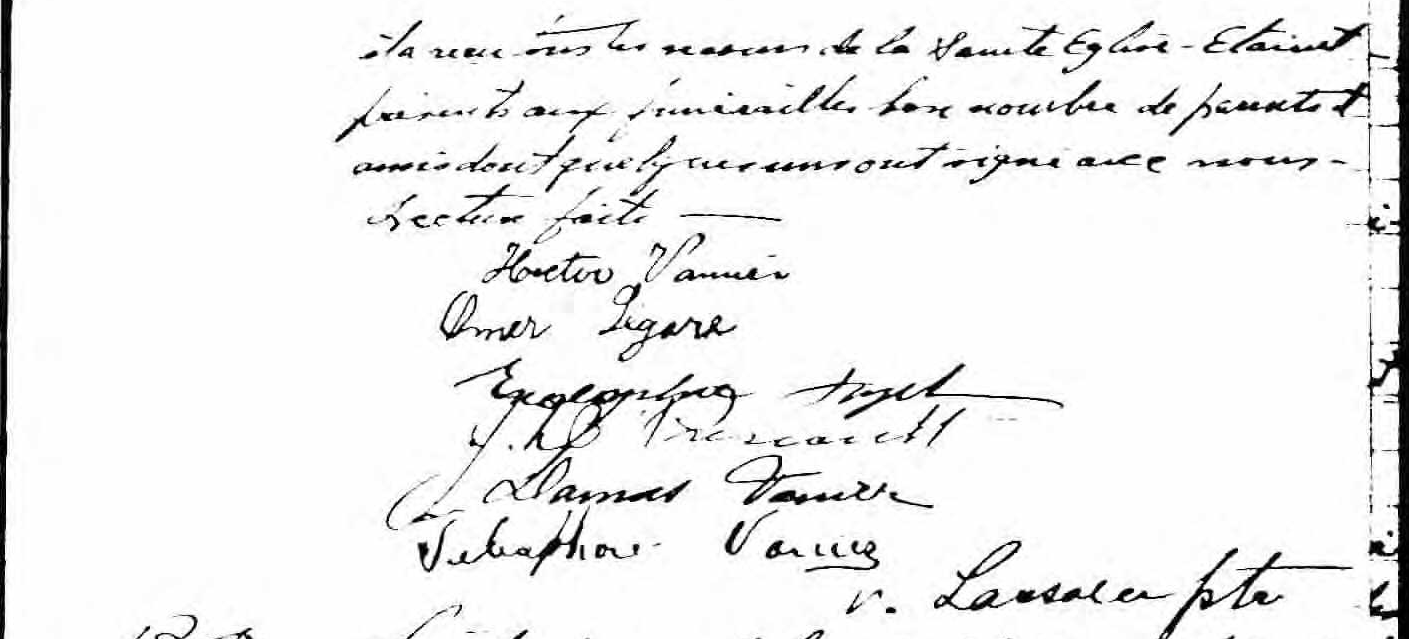 il a reçu tous les secours de la Sainte Eglise - Etaient
présents aux funérailles bon nombre de parents et
amis dont quelques uns ont signé avec nous -
Lecture faite —
Hector Vanier
Omer Legaré
J.
Damas Vanier
Télesphore Vanier
V. ptr